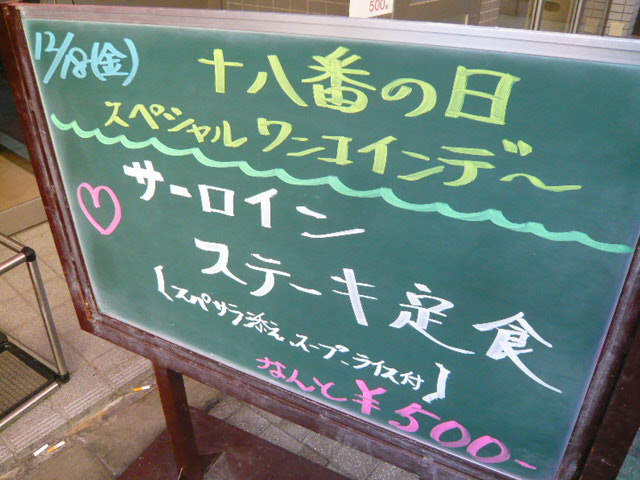 500
12/18(金)
十八番の日
スペシャルワンコインデ〜
サーロイン
ステーキ定食
(スペサラ添え、スープ、ライス付)
なんと¥500-